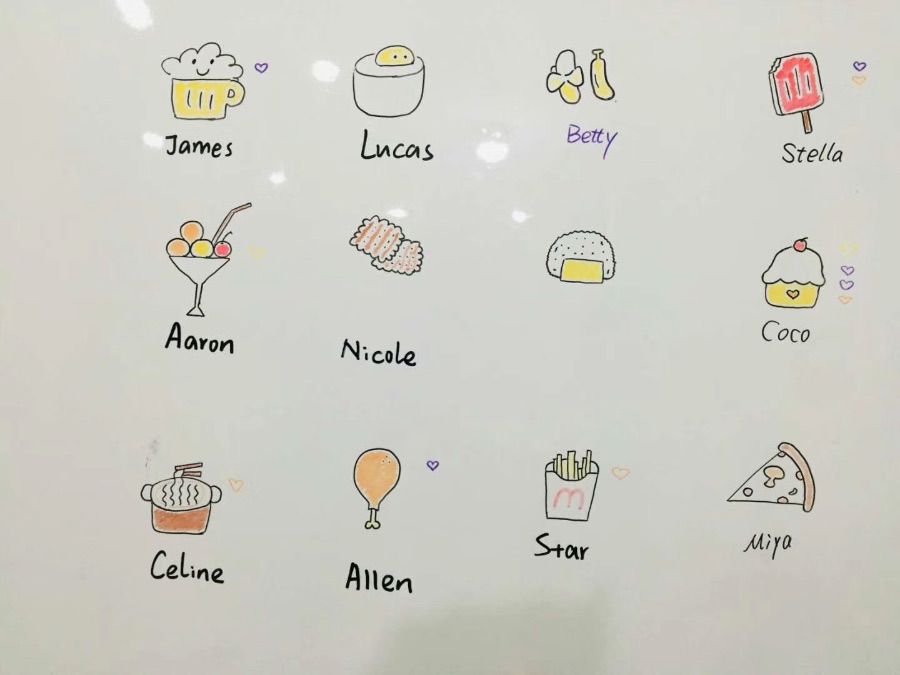 James
Lucas
Betty
Stella
Aaron
Nicole
Coco
m
Celine
Allen
Star
Miya